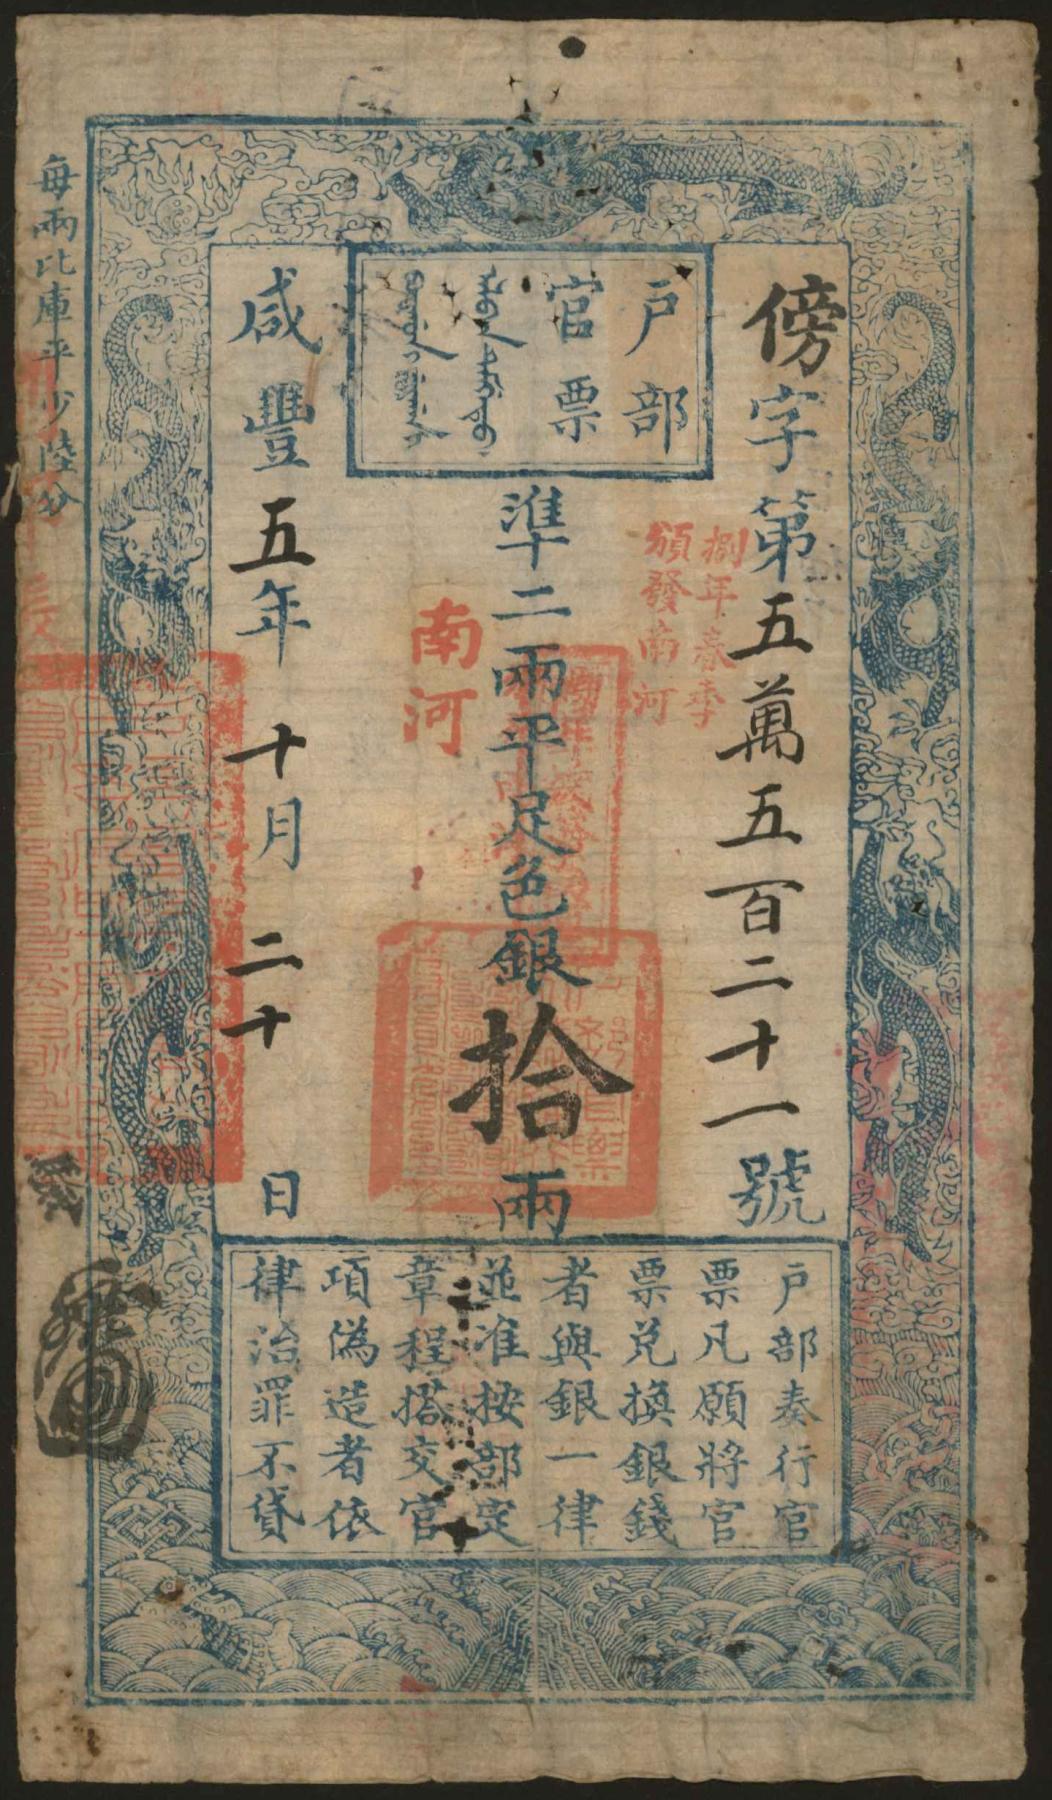 戶部
官票
傍字第五萬五百二十一號
捌年春季
頒發南河
準二兩平足色銀拾兩
南河
咸豐五年十月二十日
每兩比庫平少陸分
戶部奏行官
票凡願將官
票兌換銀錢
者與銀一律
並准按部定
章程搭交官
項偽造者依
律治罪不貸